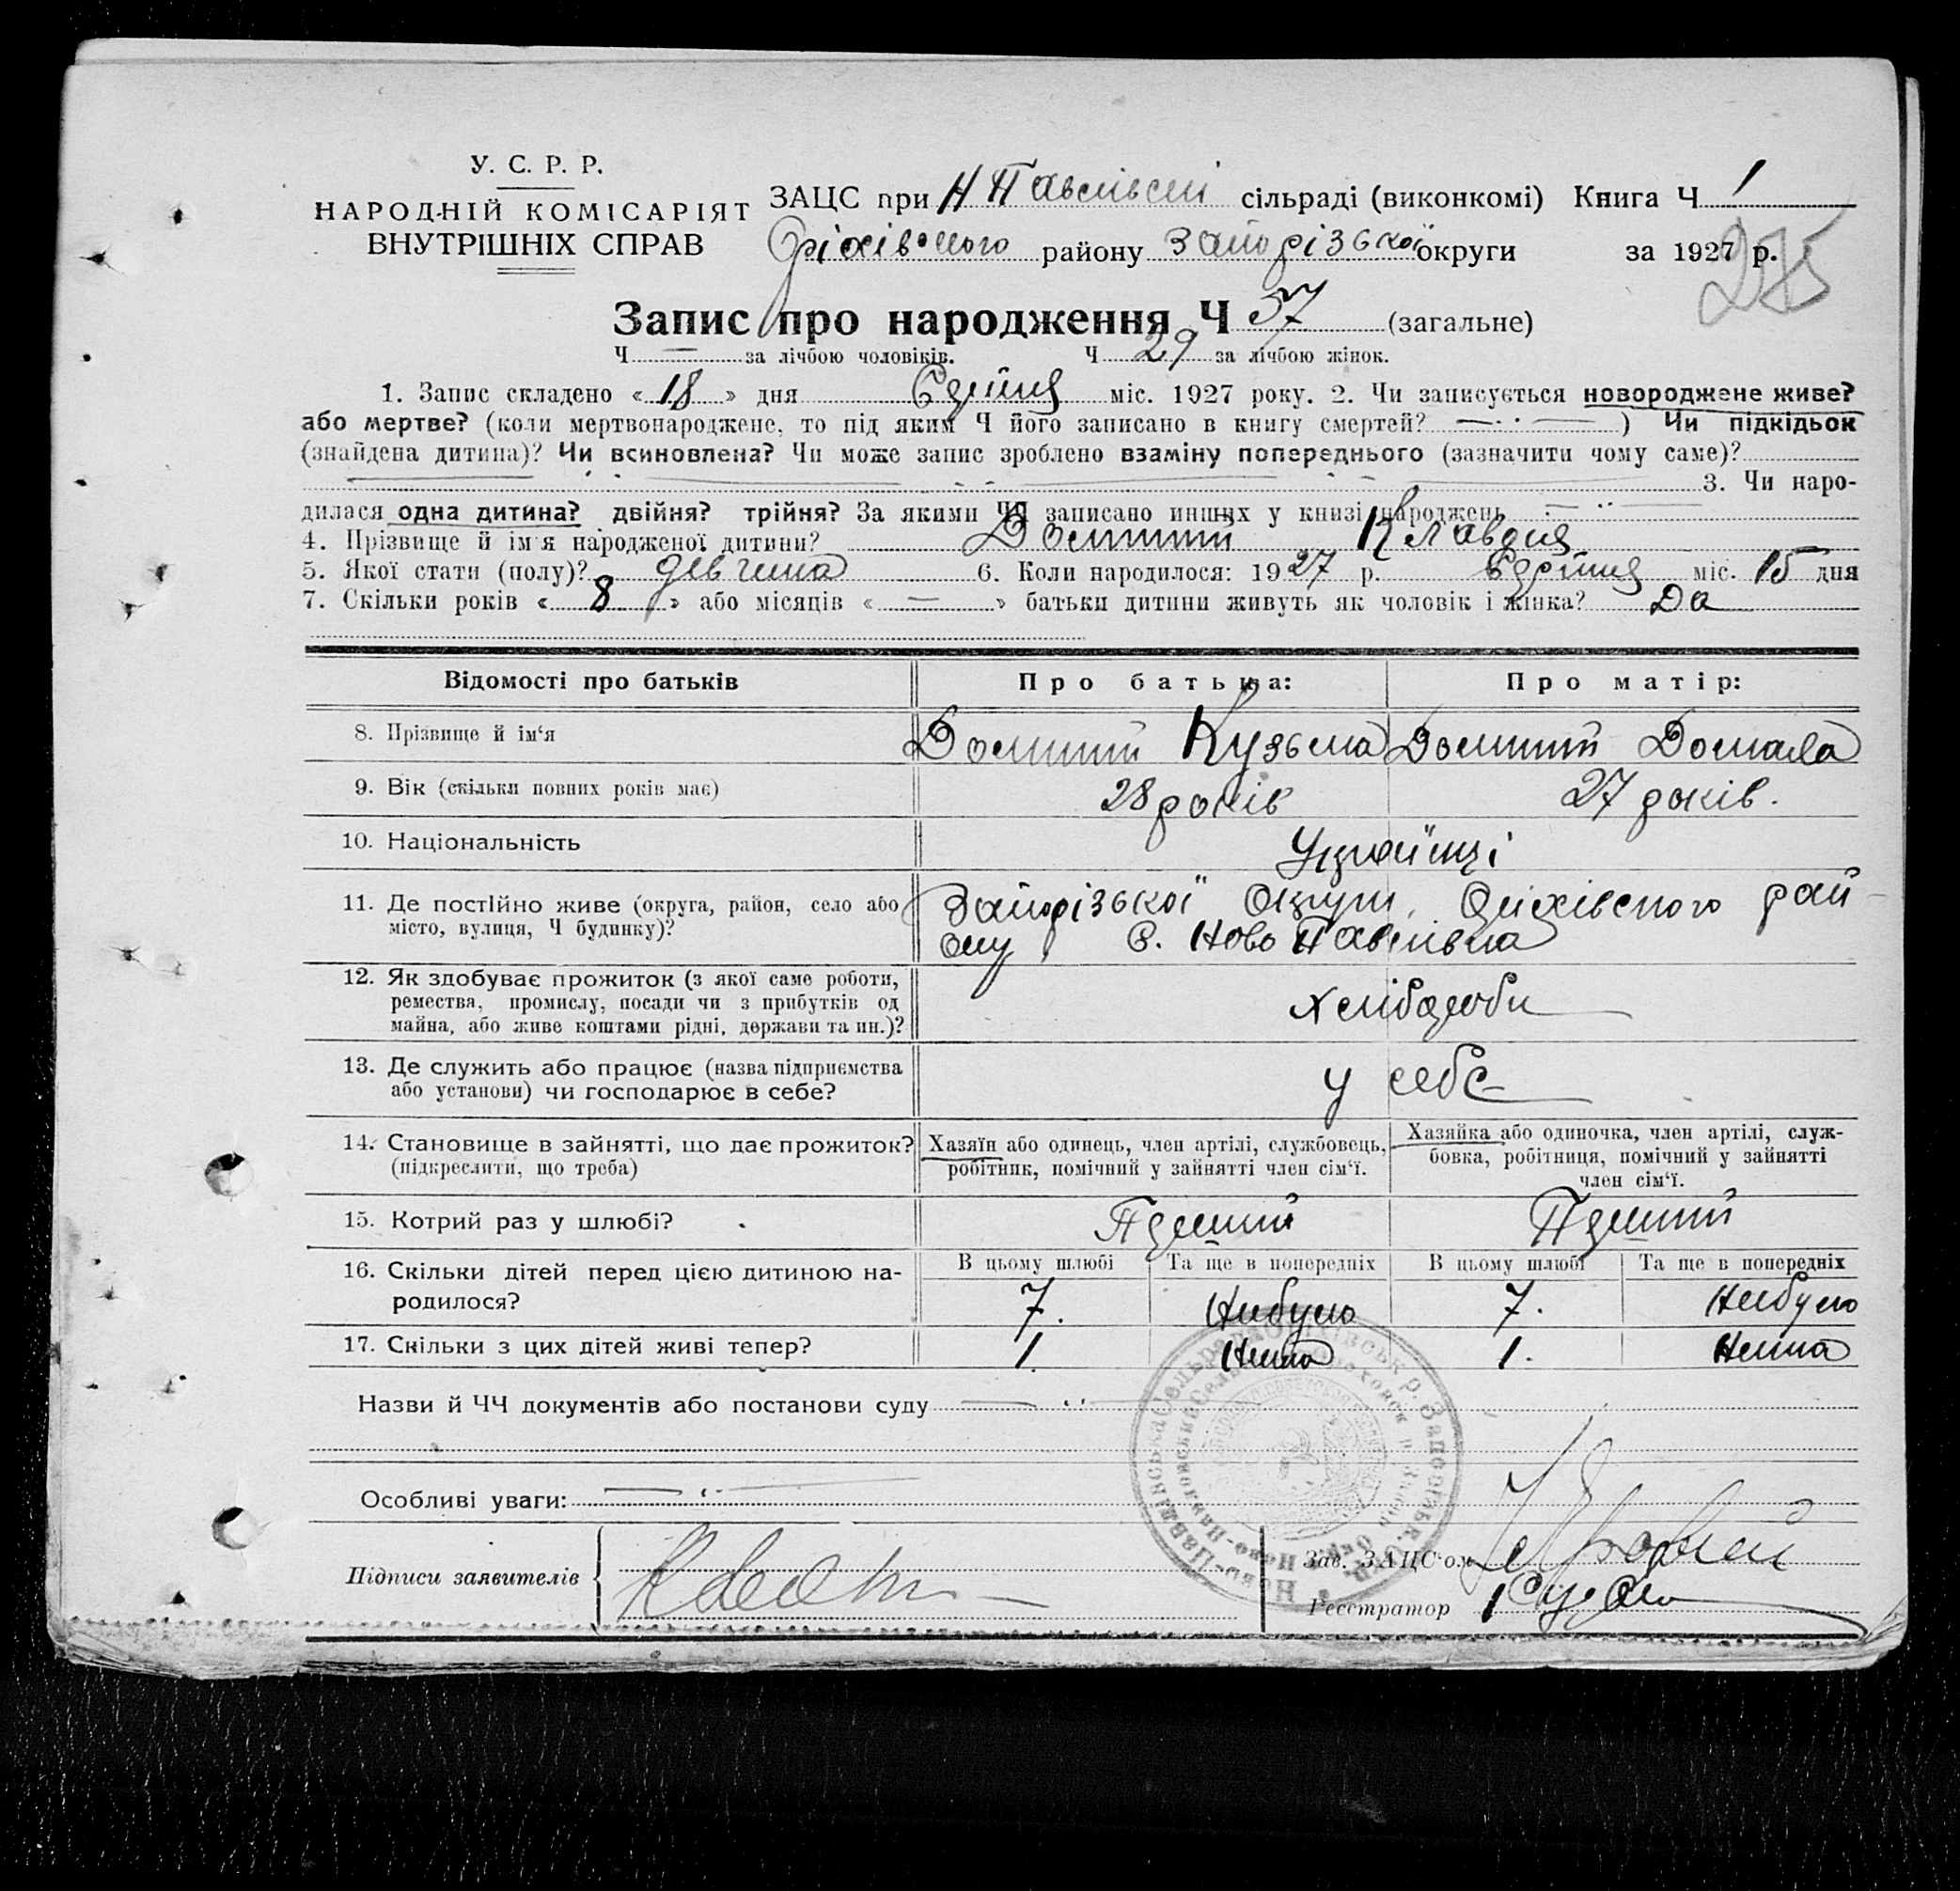 У. С. Р. Р.
НАРОДНІЙ КОМІСАРІЯТ
ВНУТРІШНІХ СПРАВ
ЗАЦС при Н Павлівскі сільраді (виконкомі) Книга Ч 1
Оріхівского району Запорізької округи за 1927 р.
275
Запис про народження Ч 37 (загальне)
Ч — за лічбою чоловіків. Ч 29 за лічбою жінок.
1. Запис складено « 18 » дня міс. 1927 року. 2. Чи записується новороджене живе?
або мертве? (коли мертвонароджене, то під яким Ч його записано в книгу смертей? — ) Чи підкідьок
(знайдена дитина)? Чи всиновлена? Чи може запис зроблено взаміну попереднього (зазначити чому саме)?
3. Чи наро-
дилася одна дитина? двійня? трійня? За якими ЧЧ записано инших у книзі народжень
4. Прізвище й ім'я народженої дитини? Клавдія
5. Якої стати (полу)? дівчина 6. Коли народилося: 1927 р. міс. 15 дня
7. Скільки років « 8 » або місяців « — » батьки дитини живуть як чоловік і жінка? Да
Відомості про батьків
Про батька:
Про матір:
8. Прізвище й ім'я
Кузьма
9. Вік (скільки повних років має)
28 років
27 років.
10. Національність
Українці
11. Де постійно живе (округа, район, село або
місто, вулиця, Ч будинку)?
Запорізької Округи, Оріхівского рай-
ону, с. Ново Павлівка
12. Як здобуває прожиток (з якої саме роботи,
ремества, промислу, посади чи з прибутків од
майна, або живе коштами рідні, держави та ин.)?
Хлібороби
13. Де служить або працює (назва підприємства
або установи) чи господарює в себе?
у себе
14. Становище в зайнятті, що дає прожиток?
(підкреслити, що треба)
Хазяїн або одинець, член артілі, службовець,
робітник, помічний у зайнятті член сім'ї.
Хазяйка або одиночка, член артілі, служ-
бовка, робітниця, помічний у зайнятті
член сім'ї.
15. Котрий раз у шлюбі?
Первий
Первий
16. Скільки дітей перед цією дитиною на-
родилося?
В цьому шлюбі
Та ще в попередніх
В цьому шлюбі
Та ще в попередніх
7.
Небуло
7.
Небуло
17. Скільки з цих дітей живі тепер?
1.
Нема
1.
Нема
Назви й ЧЧ документів або постанови суду
Особливі уваги:
Підписи заявителів
Зав. ЗАЦС'ом
Реєстратор